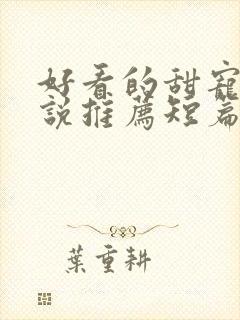 好看的甜寵
說推薦短篇
葉重耕